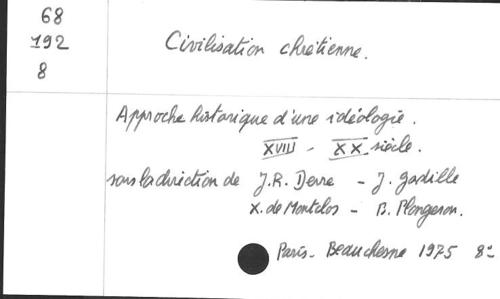 68
192
8
Civilisation chrétienne.
Approche historique d'une idéologie.
XVIII - XX siècle.
sous la direction de J.R. Derre - J. Gadille
X. de Montclos - B. Plongeron.
Paris - Beauchesne 1975 8°